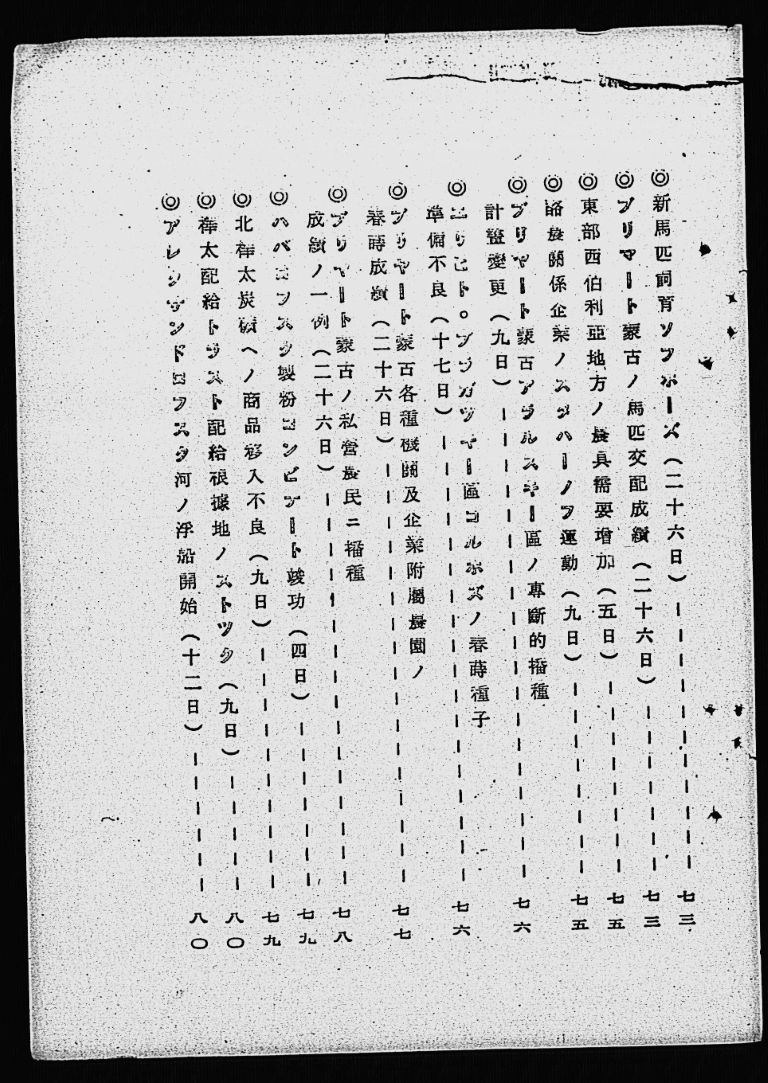 ◎新馬匹飼育ソフホーズ(二十六日)――――――――――――七三
◎ブリヤート蒙古ノ馬匹交配成績(二十六日)―――――――七三
◎東部西伯利亞地方ノ農具需要増加(五日)――――――――七五
◎諸農關係企業ノスタハーノフ運動(九日)――――――――七五
◎ブリヤート蒙古アラルスキー區ノ專斷的播種
計畫變更(九日)――――――――――――――――――――七六
◎エリヒト。ブラガツキー區コルホズノ春蒔種子
準備不良(十七日)―――――――――――――――――――七六
◎ブリヤート蒙古各種機關及企業附屬農園ノ
春蒔成績(二十六日)――――――――――――――――――七七
◎ブリヤート蒙古ノ私營農民ニ播種
成績ノ一例(二十六日)―――――――――――――――――七八
◎ハバロフスク製粉コンビナート竣功(四日)―――――――七九
◎北樺太炭礦ヘノ商品移入不良(九日)――――――――――七九
◎樺太配給トラスト配給根據地ノストツク(九日)―――――八〇
◎アレクサンドロフスク河ノ浮船開始(十二日)――――――八〇